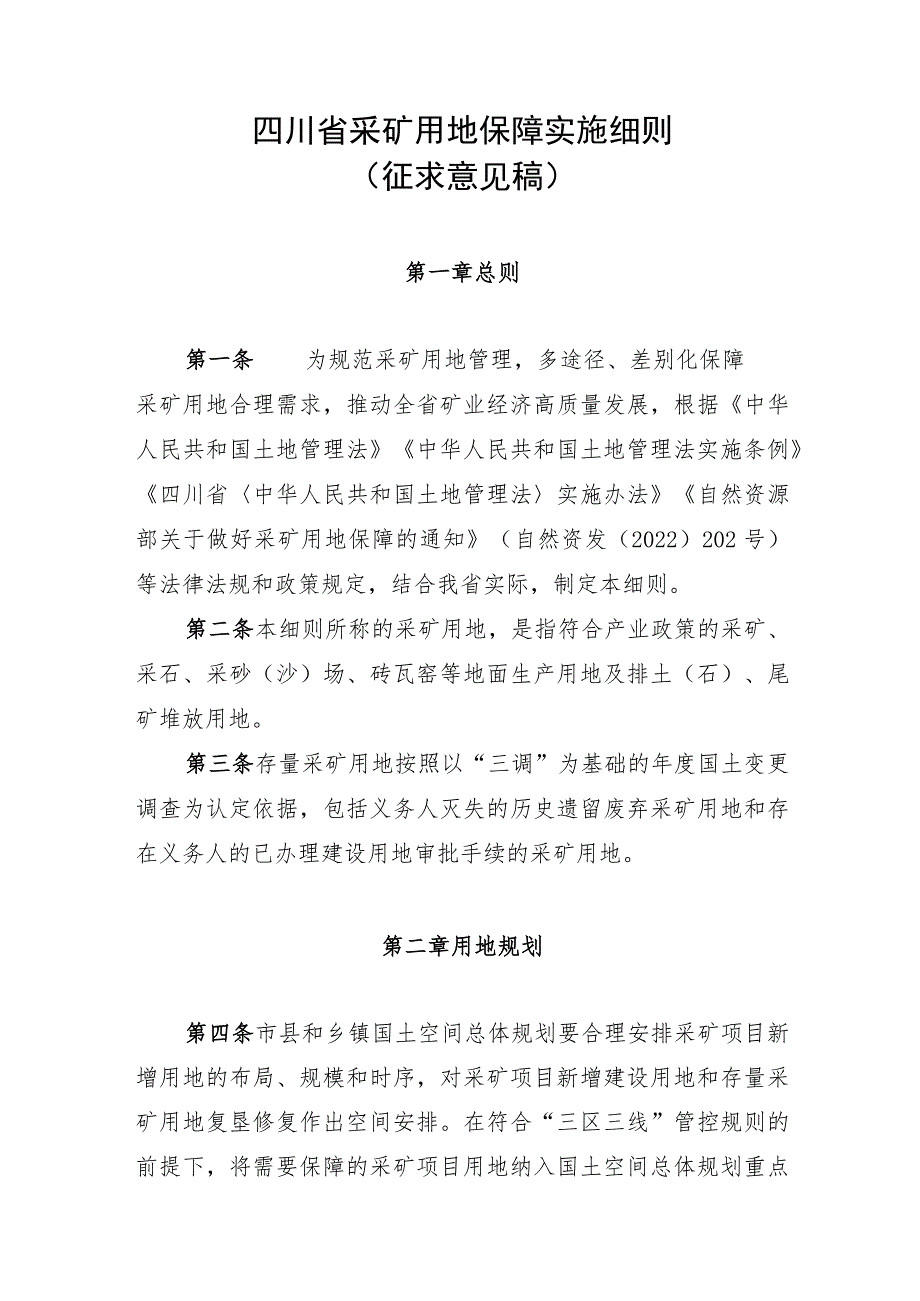 四川省采矿用地保障实施细则
（征求意见稿）
第一章总则
第一条 为规范采矿用地管理，多途径、差别化保障
采矿用地合理需求，推动全省矿业经济高质量发展，根据《中华
人民共和国土地管理法》《中华人民共和国土地管理法实施条例》
《四川省〈中华人民共和国土地管理法〉实施办法》《自然资源
部关于做好采矿用地保障的通知》（自然资发（2022）202 号）
等法律法规和政策规定，结合我省实际，制定本细则。
第二条本细则所称的采矿用地，是指符合产业政策的采矿、
采石、采砂（沙）场、砖瓦窑等地面生产用地及排土（石）、尾
矿堆放用地。
第三条存量采矿用地按照以“三调”为基础的年度国土变更
调查为认定依据，包括义务人灭失的历史遗留废弃采矿用地和存
在义务人的已办理建设用地审批手续的采矿用地。
第二章用地规划
第四条市县和乡镇国土空间总体规划要合理安排采矿项目新
增用地的布局、规模和时序，对采矿项目新增建设用地和存量采
矿用地复垦修复作出空间安排。在符合“三区三线”管控规则的
前提下，将需要保障的采矿项目用地纳入国土空间总体规划重点